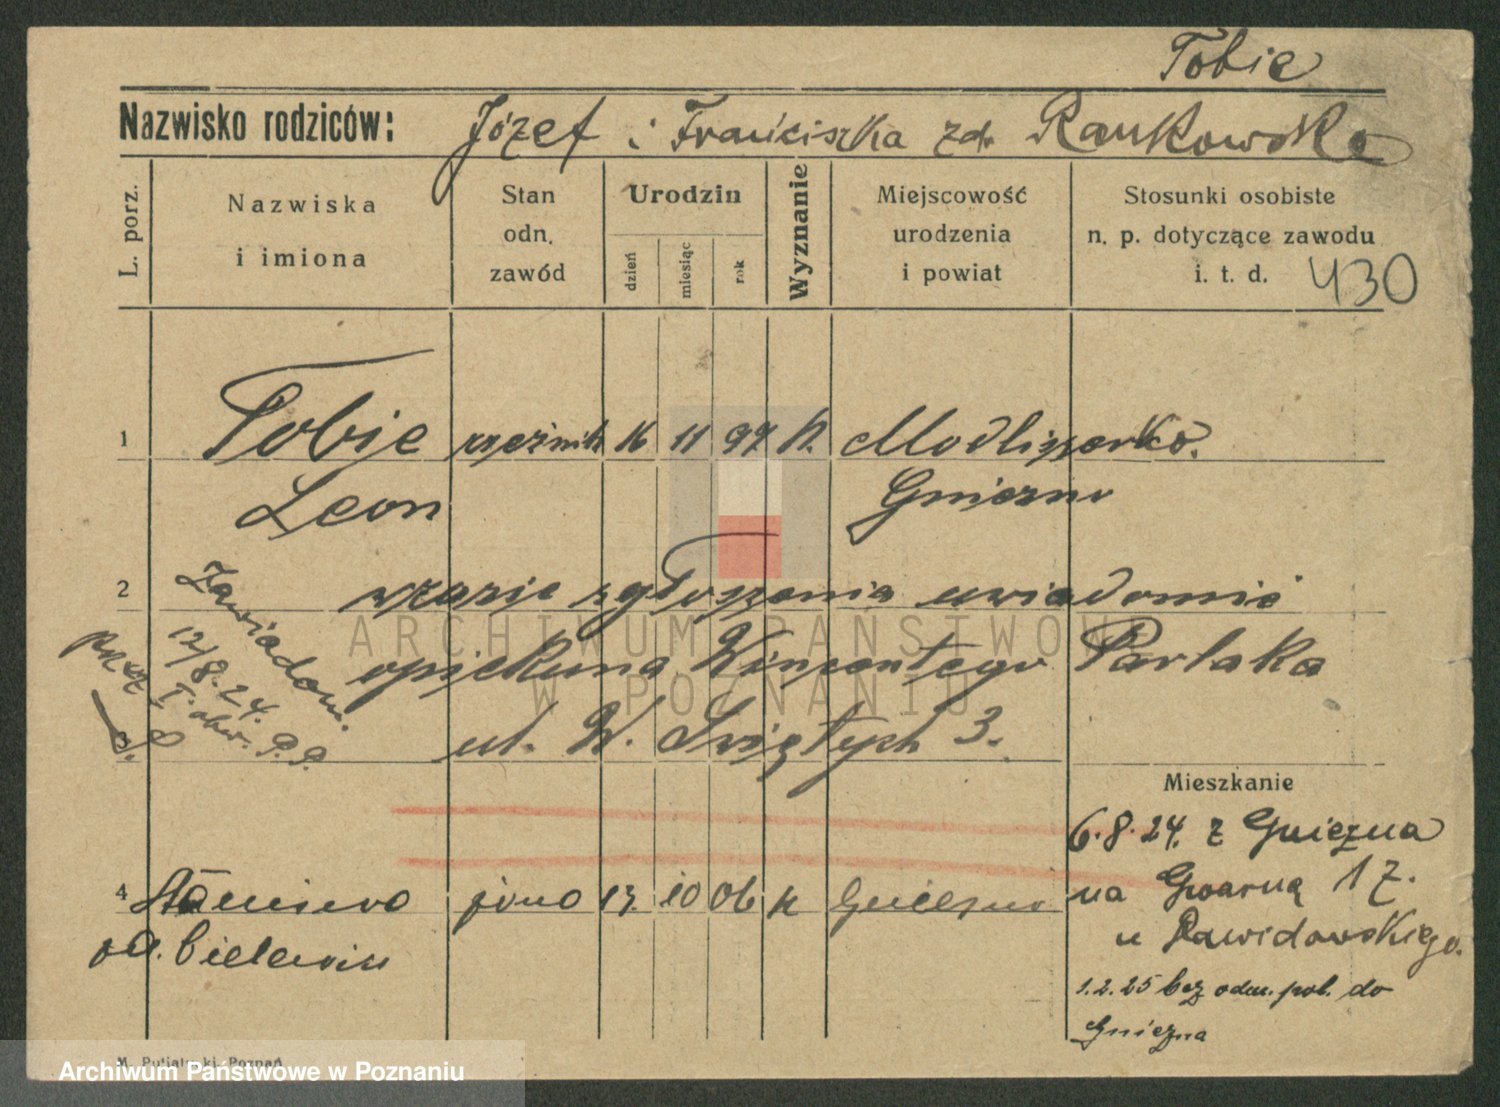 Tobie
Nazwisko rodziców: Józef i Franciszka zd. Rankowska
L. porz.
Nazwiska i imiona
Stan odn. zawód
Urodzin
dzień
miesiąc
rok
Wyznanie
Miejscowość urodzenia i powiat
Stosunki osobiste n. p. dotyczące zawodu i. t. d.
430
1 Tobie rzeźnik 16 11 97 k. Modliszewko.
Leon Gniezno
2 wrazie zgłoszenia uwiadomić
opiekuna Wincentego Parlaka
3 ul. W. Świętych 3.
Zawiadom.
12/8.24.
I. obw. P.P.
Mieszkanie
6.8.24. z Gniezna
na Gwarną 17.
u Dawidowskiego.
1.2.25 bez odm. pol. do
Gniezna
4 Stanisława żona 13. 10 06 k Gniezno
M. Putiatycki, Poznań
ARCHIWUM PAŃSTWOWE
W POZNANIU
Archiwum Państwowe w Poznaniu